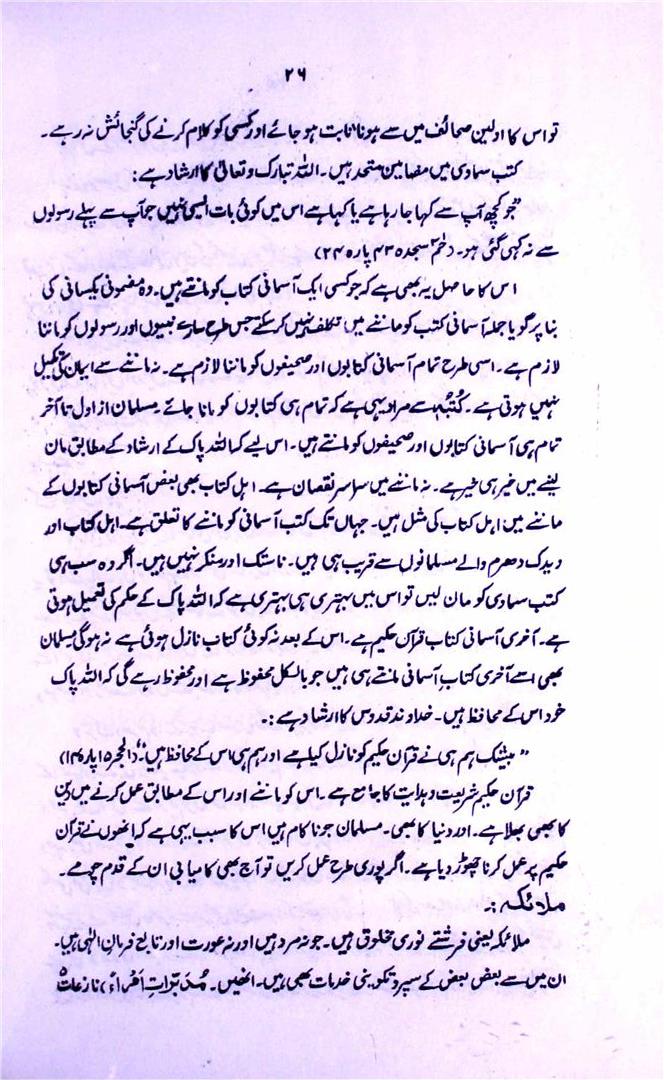 ۲۶
تو اس کا اولین صحائف میں سے ہونا ثابت ہو جائے اور کسی کو کلام کرنے کی گنجائش نہ رہے۔
کتب سماوی میں مضامین متحد ہیں۔ اللہ تبارک و تعالیٰ کا ارشاد ہے:
”جو کچھ آپ سے کہا جا رہا ہے یا کہا ہے اس میں کوئی بات ایسی نہیں جو آپ سے پہلے رسولوں
سے نہ کہی گئی ہو۔ (حٰم سجدہ ۴۳ پارہ ۲۴)
اس کا حاصل یہ بھی ہے کہ جو کسی ایک آسمانی کتاب کو مانتے ہیں۔ وہ مضمونی یکسانی کی
بنا پر گویا جملہ آسمانی کتب کو ماننے میں تکلف نہیں کر سکتے جس طرح سارے نبیوں اور رسولوں کو ماننا
لازم ہے۔ اسی طرح تمام آسمانی کتابوں اور صحیفوں کو ماننا لازم ہے۔ نہ ماننے سے ایمان کی تکمیل
نہیں ہوتی ہے۔ کُتُبِہٖ سے مراد یہی ہے کہ تمام ہی کتابوں کو مانا جائے۔ مسلمان از اول تا آخر
تمام ہی آسمانی کتابوں اور صحیفوں کو مانتے ہیں۔ اس لیے کہ اللہ پاک کے ارشاد کے مطابق مان
لینے میں خیر ہی خیر ہے۔ نہ ماننے میں سراسر نقصان ہے۔ اہل کتاب بھی بعض آسمانی کتابوں کے
ماننے میں اہل کتاب کی مثل ہیں۔ جہاں تک کتب آسمانی کو ماننے کا تعلق ہے۔ اہل کتاب اور
ویدک دھرم والے مسلمانوں سے قریب ہی ہیں۔ ناستک اور منکر نہیں ہیں۔ اگر وہ سب ہی
کتب سماوی کو مان لیں تو اس میں بہتری ہی بہتری ہے کہ اللہ پاک کے حکم کی تعمیل ہوتی
ہے۔ آخری آسمانی کتاب قرآن حکیم ہے۔ اس کے بعد نہ کوئی کتاب نازل ہوئی ہے نہ ہوگی مسلمان
بھی اسے آخری کتابِ آسمانی مانتے ہی ہیں جو بالکل محفوظ ہے اور محفوظ رہے گی کہ اللہ پاک
خود اس کے محافظ ہیں۔ خداوند قدوس کا ارشاد ہے :۔
”بیشک ہم ہی نے قرآن حکیم کو نازل کیا ہے اور ہم ہی اس کے محافظ ہیں“۔ (الحجر ۱۵ پارہ ۱۴)
قرآن حکیم شریعت و ہدایت کا جامع ہے۔ اس کو ماننے اور اس کے مطابق عمل کرنے میں دین
کا بھی بھلا ہے۔ اور دنیا کا بھی۔ مسلمان جو ناکام ہیں اس کا سبب یہی ہے کہ انھوں نے قرآن
حکیم پر عمل کرنا چھوڑ دیا ہے۔ اگر پوری طرح عمل کریں تو آج بھی کامیابی ان کے قدم چومے۔
ملائکہ :۔
ملائکہ یعنی فرشتے نوری مخلوق ہیں۔ جو نہ مرد ہیں اور نہ عورت اور تابع فرمانِ الٰہی ہیں۔
ان میں سے بعض بعض کے سپرد تکوینی خدمات بھی ہیں۔ انھیں۔ مُدَبِّرَاتِ اَمْراً (نازعات